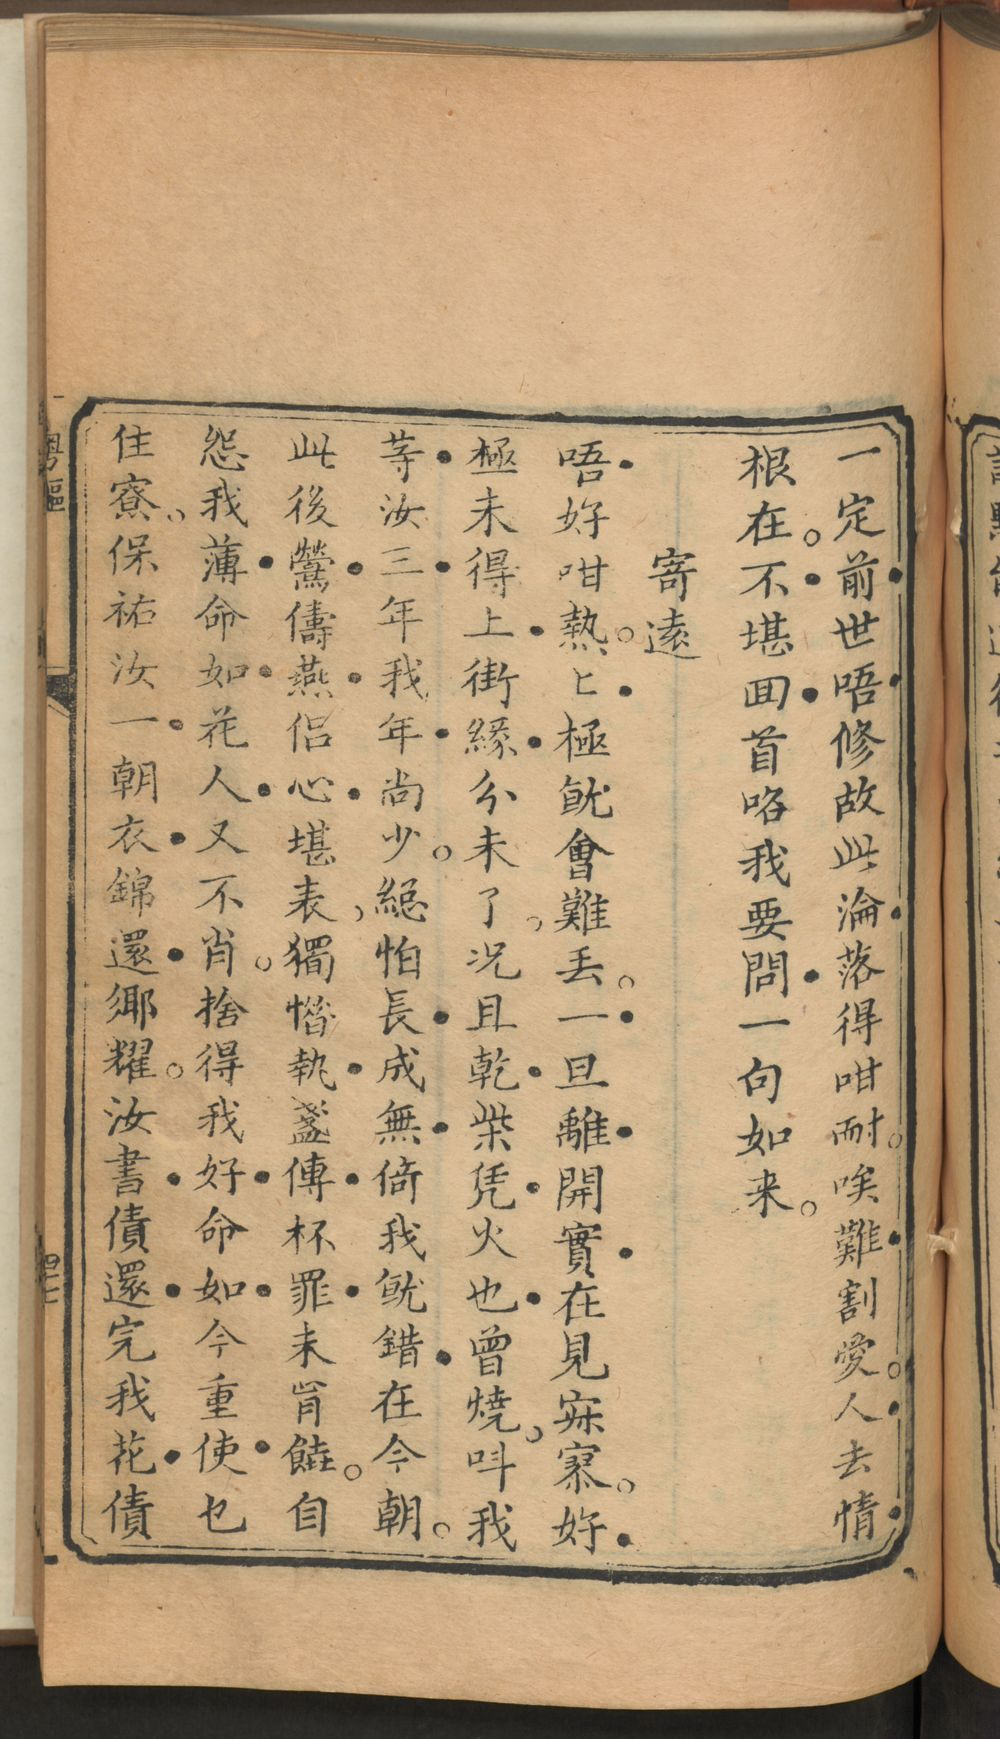 一定前世唔修故此淪落得咁耐唉難割愛人去情
根在不堪囬首咯我要問一句如来
寄遠
唔好咁熱〻極就會難丟一旦離開實在見寂寥好
極未得上街緣分未了况且乾柴凭火也曾燒呌我
等汝三年我年尚少縂怕長成無倚我就錯在今朝
此後鶯儔燕侣心堪表獨惜執盞傳杯罪未肯饒自
怨我薄命如花人又不肖捨得我好命如今重使乜
住寮保祐汝一朝衣錦還鄉耀汝書債還完我花債
粵謳
四十七